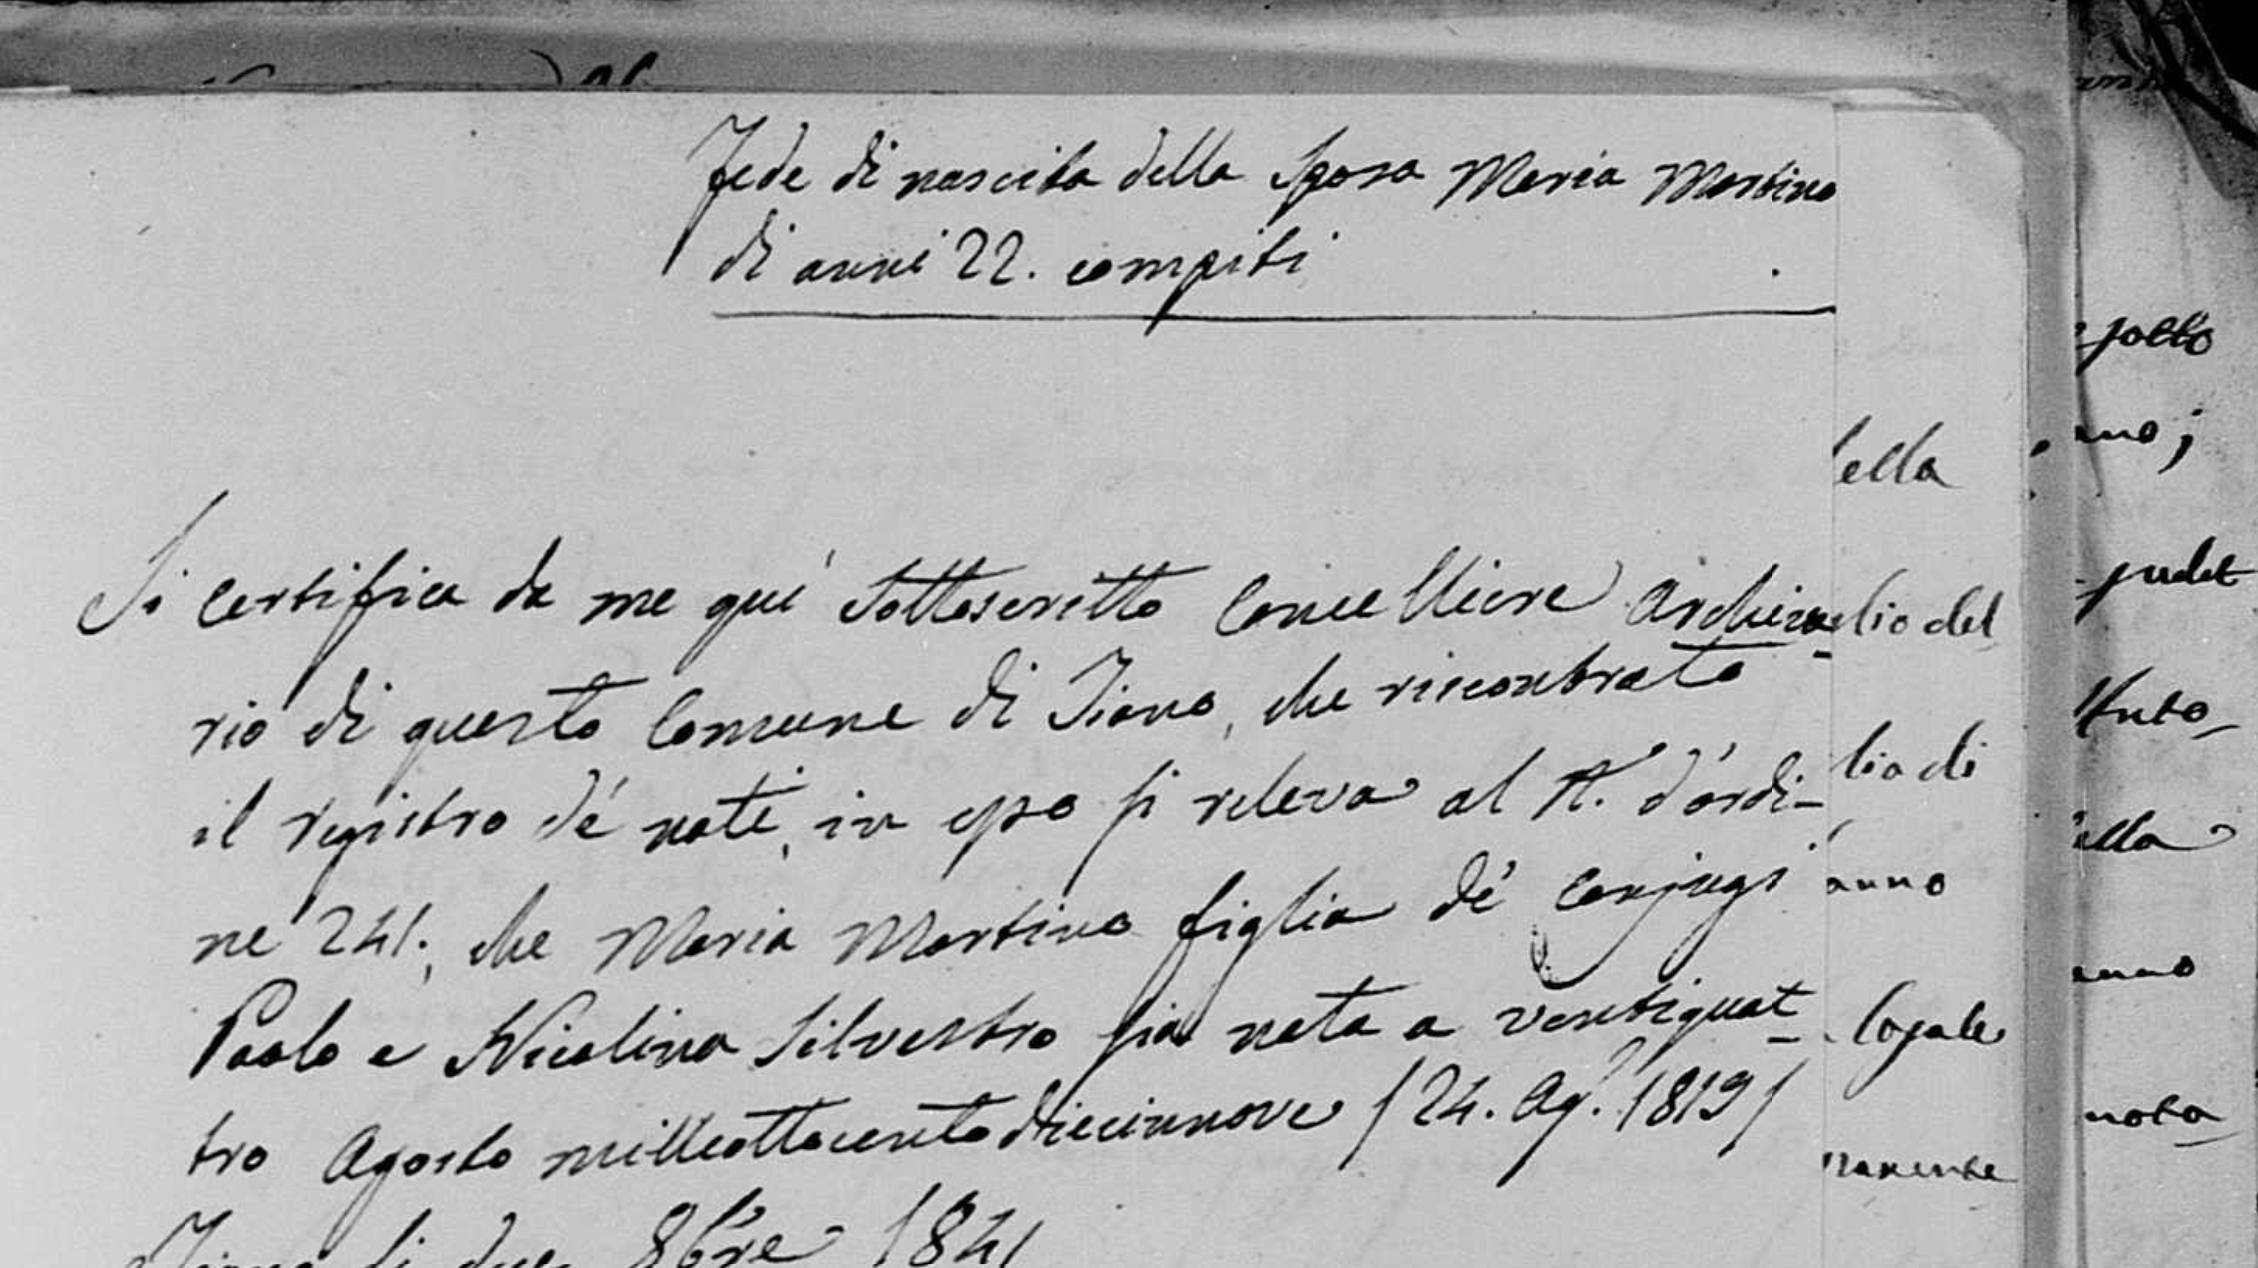 Fede di nascita della Sposa Maria Martino
di anni 22. compiti
Si certifica da me quì sottoscritto Cancelliere Archiva-
rio di questo Comune di Tiano, che riscontrato
il registro de' nati, in esso si rileva al N.° d'ordi-
ne 241., che Maria Martino figlia de' conjugi
Paolo e Nicolina Silvestro sia nata a ventiquat-
tro Agosto milleottocentodiecinnove /24. Ag.° 1819/
li due 8bre 1841
ella
lio del
lio di
anno
legale